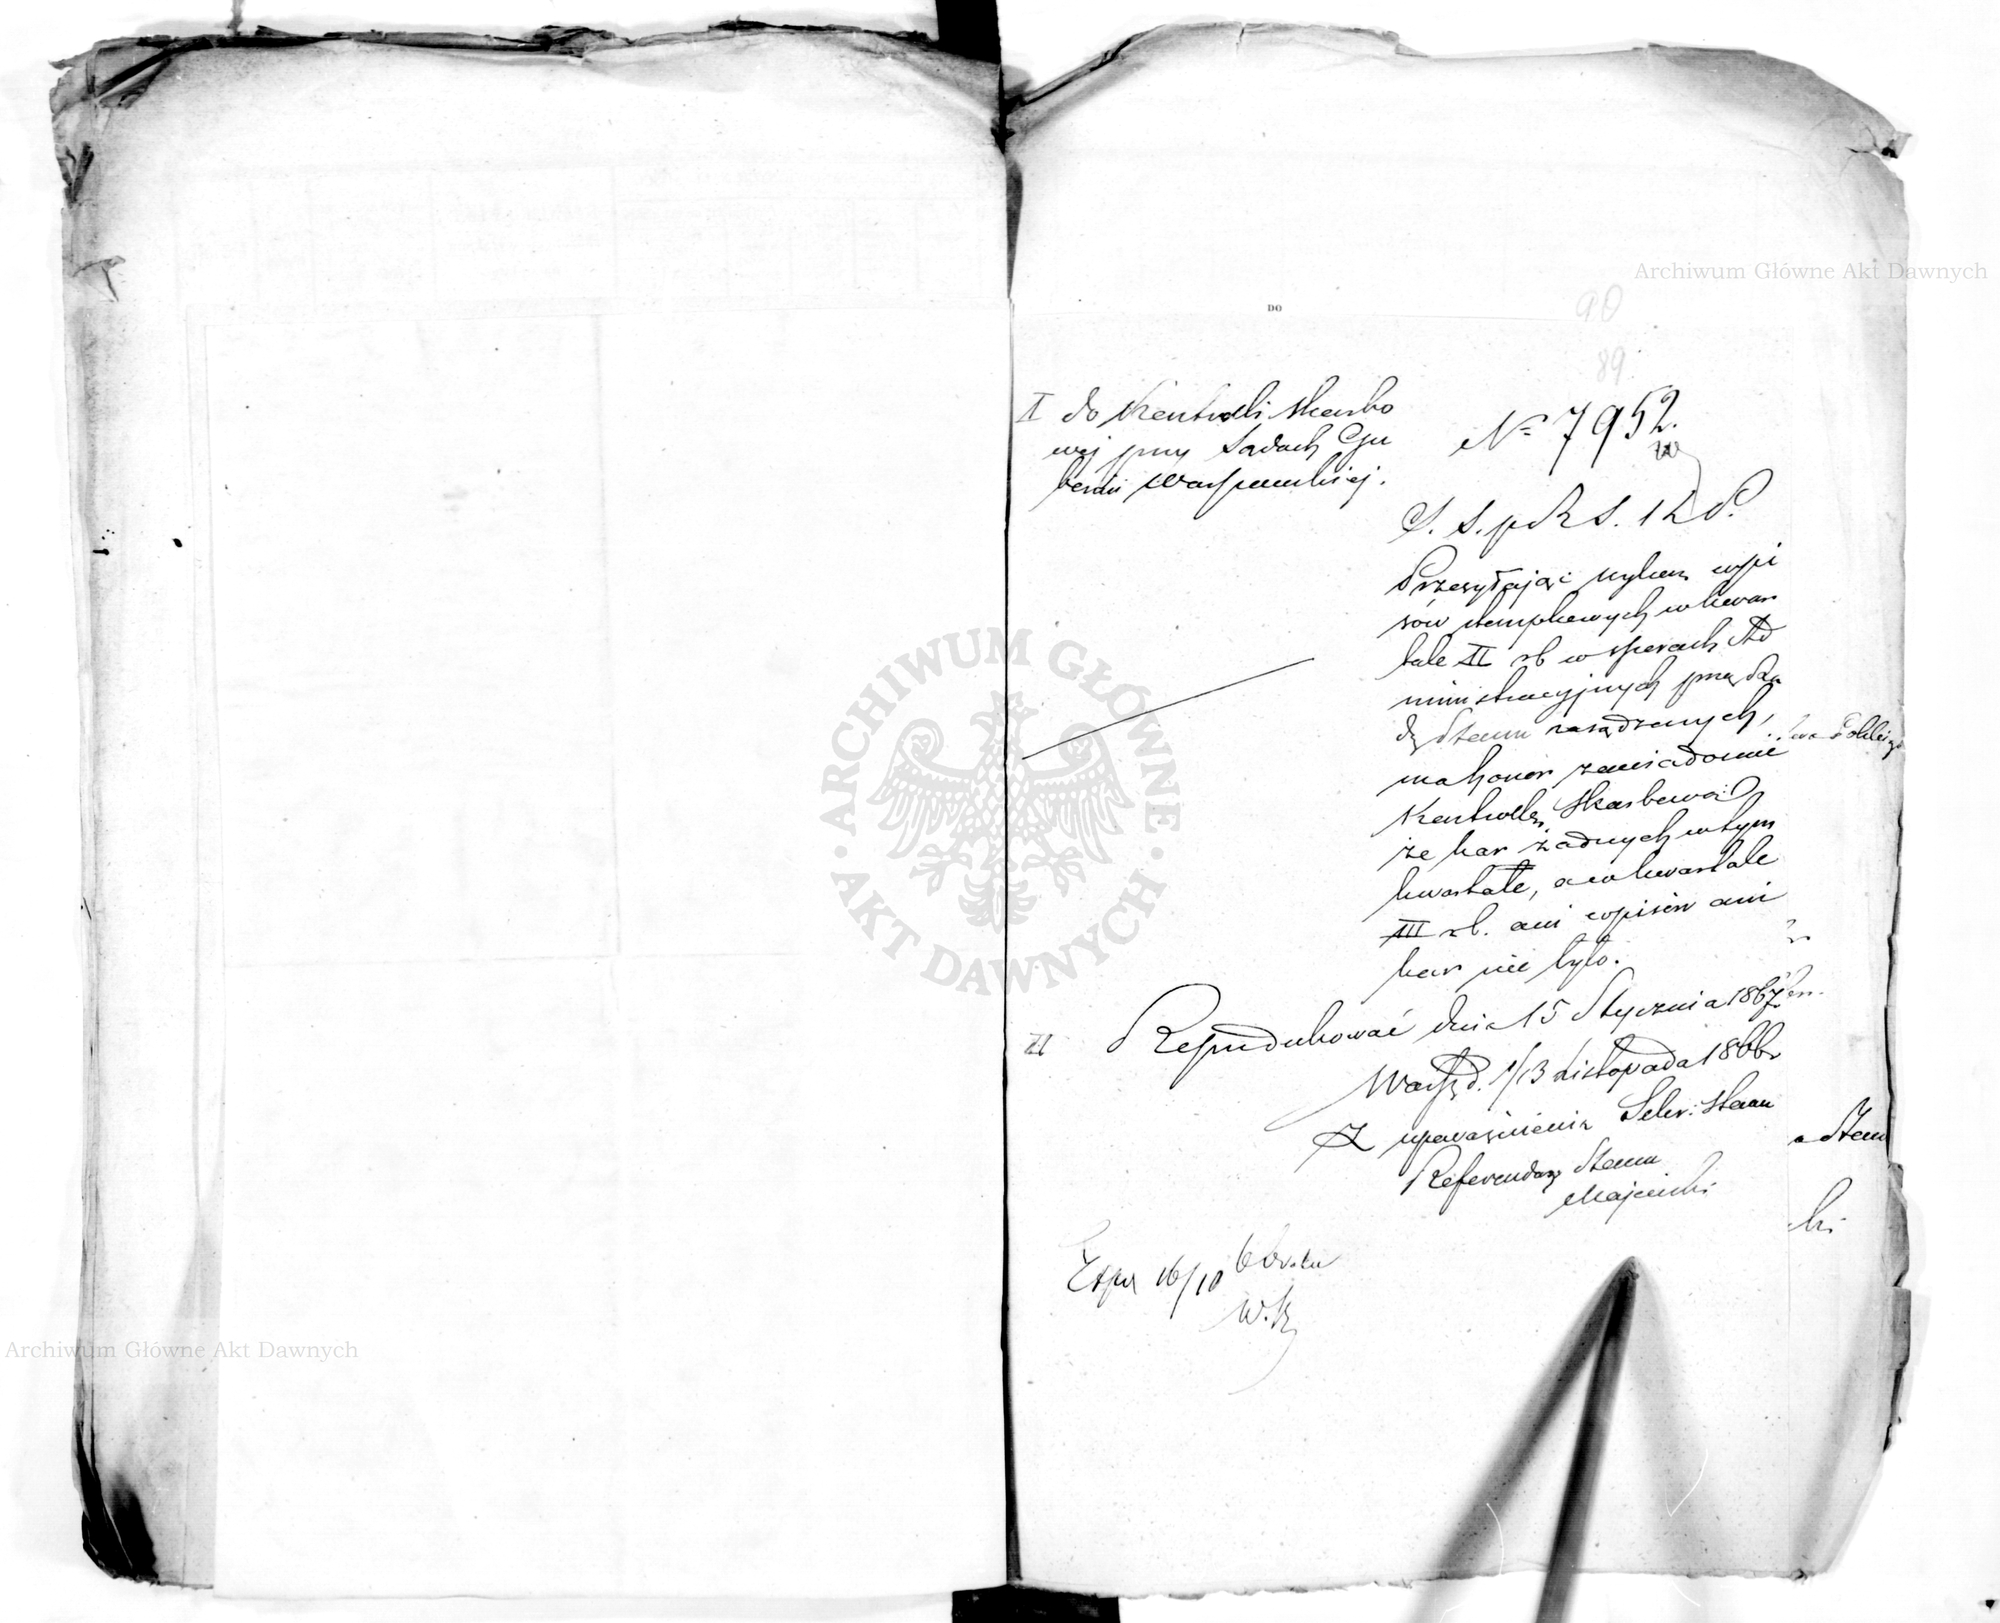 Archiwum Główne Akt Dawnych
DO
90
89
I do Kontroli Skarbo
wej przy Sądach Gu
bernii Warszawskiej.
No 7952.
S. S. p R S. 1 K P.
Przesyłając wykaz wypi
sów stemplowych w kwar
tale II rb w sporach Ad
ministracyjnych przez Ra
dę Stanu zasądzonych,
ma honor zawiadomić
Kontrollę Skarbową
że kar żadnych w tym
kwartale, a w kwartale
III rb. ani wypisów ani
kar nie było.
II Reprodukować dnia 15 Stycznia 1867 r.
Warsz. d. 1/13 Listopada 1866 r
Z upoważnienia Sekr: Stanu
Referendarz Stanu
a Stanu
ki
Exp 16/10
W. K
ARCHIWUM GŁÓWNE
AKT DAWNYCH
Archiwum Główne Akt Dawnych